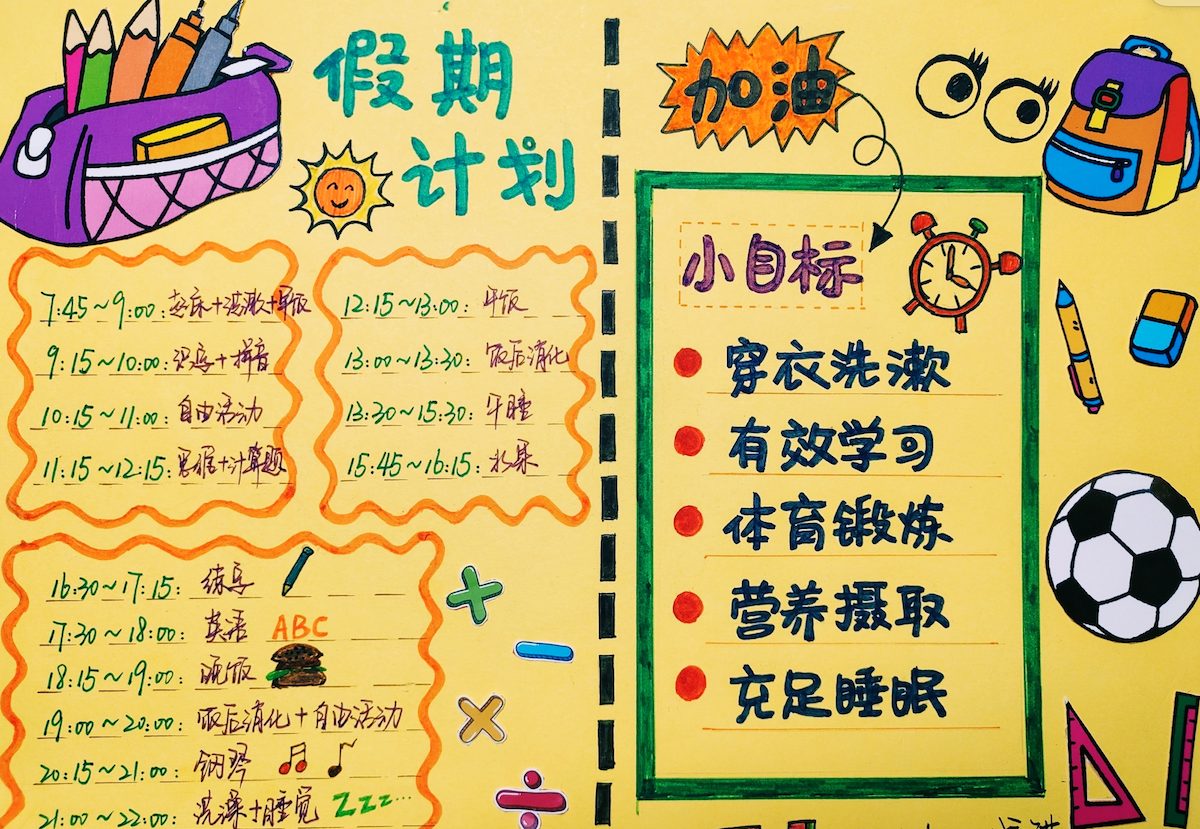 假期
计划
7:45~9:00:起床+洗漱+早饭
9:15~10:00:识字+拼音
10:15~11:00:自由活动
11:15~12:15:思维+计算题
12:15~13:00:午饭
13:00~13:30:饭后消化
13:30~15:30:午睡
15:45~16:15:水果
16:30~17:15:练字
17:30~18:00:英语 ABC
18:15~19:00:晚饭
19:00~20:00:饭后消化+自由活动
20:15~21:00:钢琴
21:00~22:00:洗澡+睡觉 Zzz...
加油
小目标
穿衣洗漱
有效学习
体育锻炼
营养摄取
充足睡眠